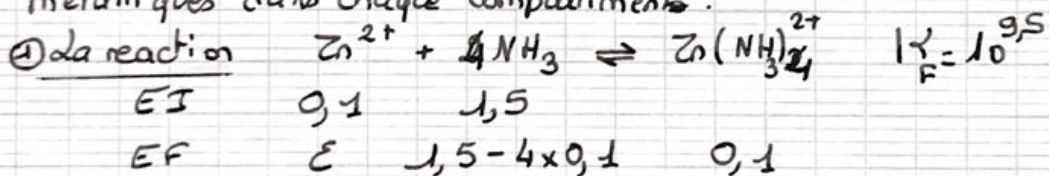 métalliques dans chaque compartiment.
① La reaction Zn²⁺ + 4NH₃ ⇌ Zn(NH₃)₄²⁺ K_F = 10^9,5
EI 0,1 1,5
EF ε 1,5 - 4x0,1 0,1